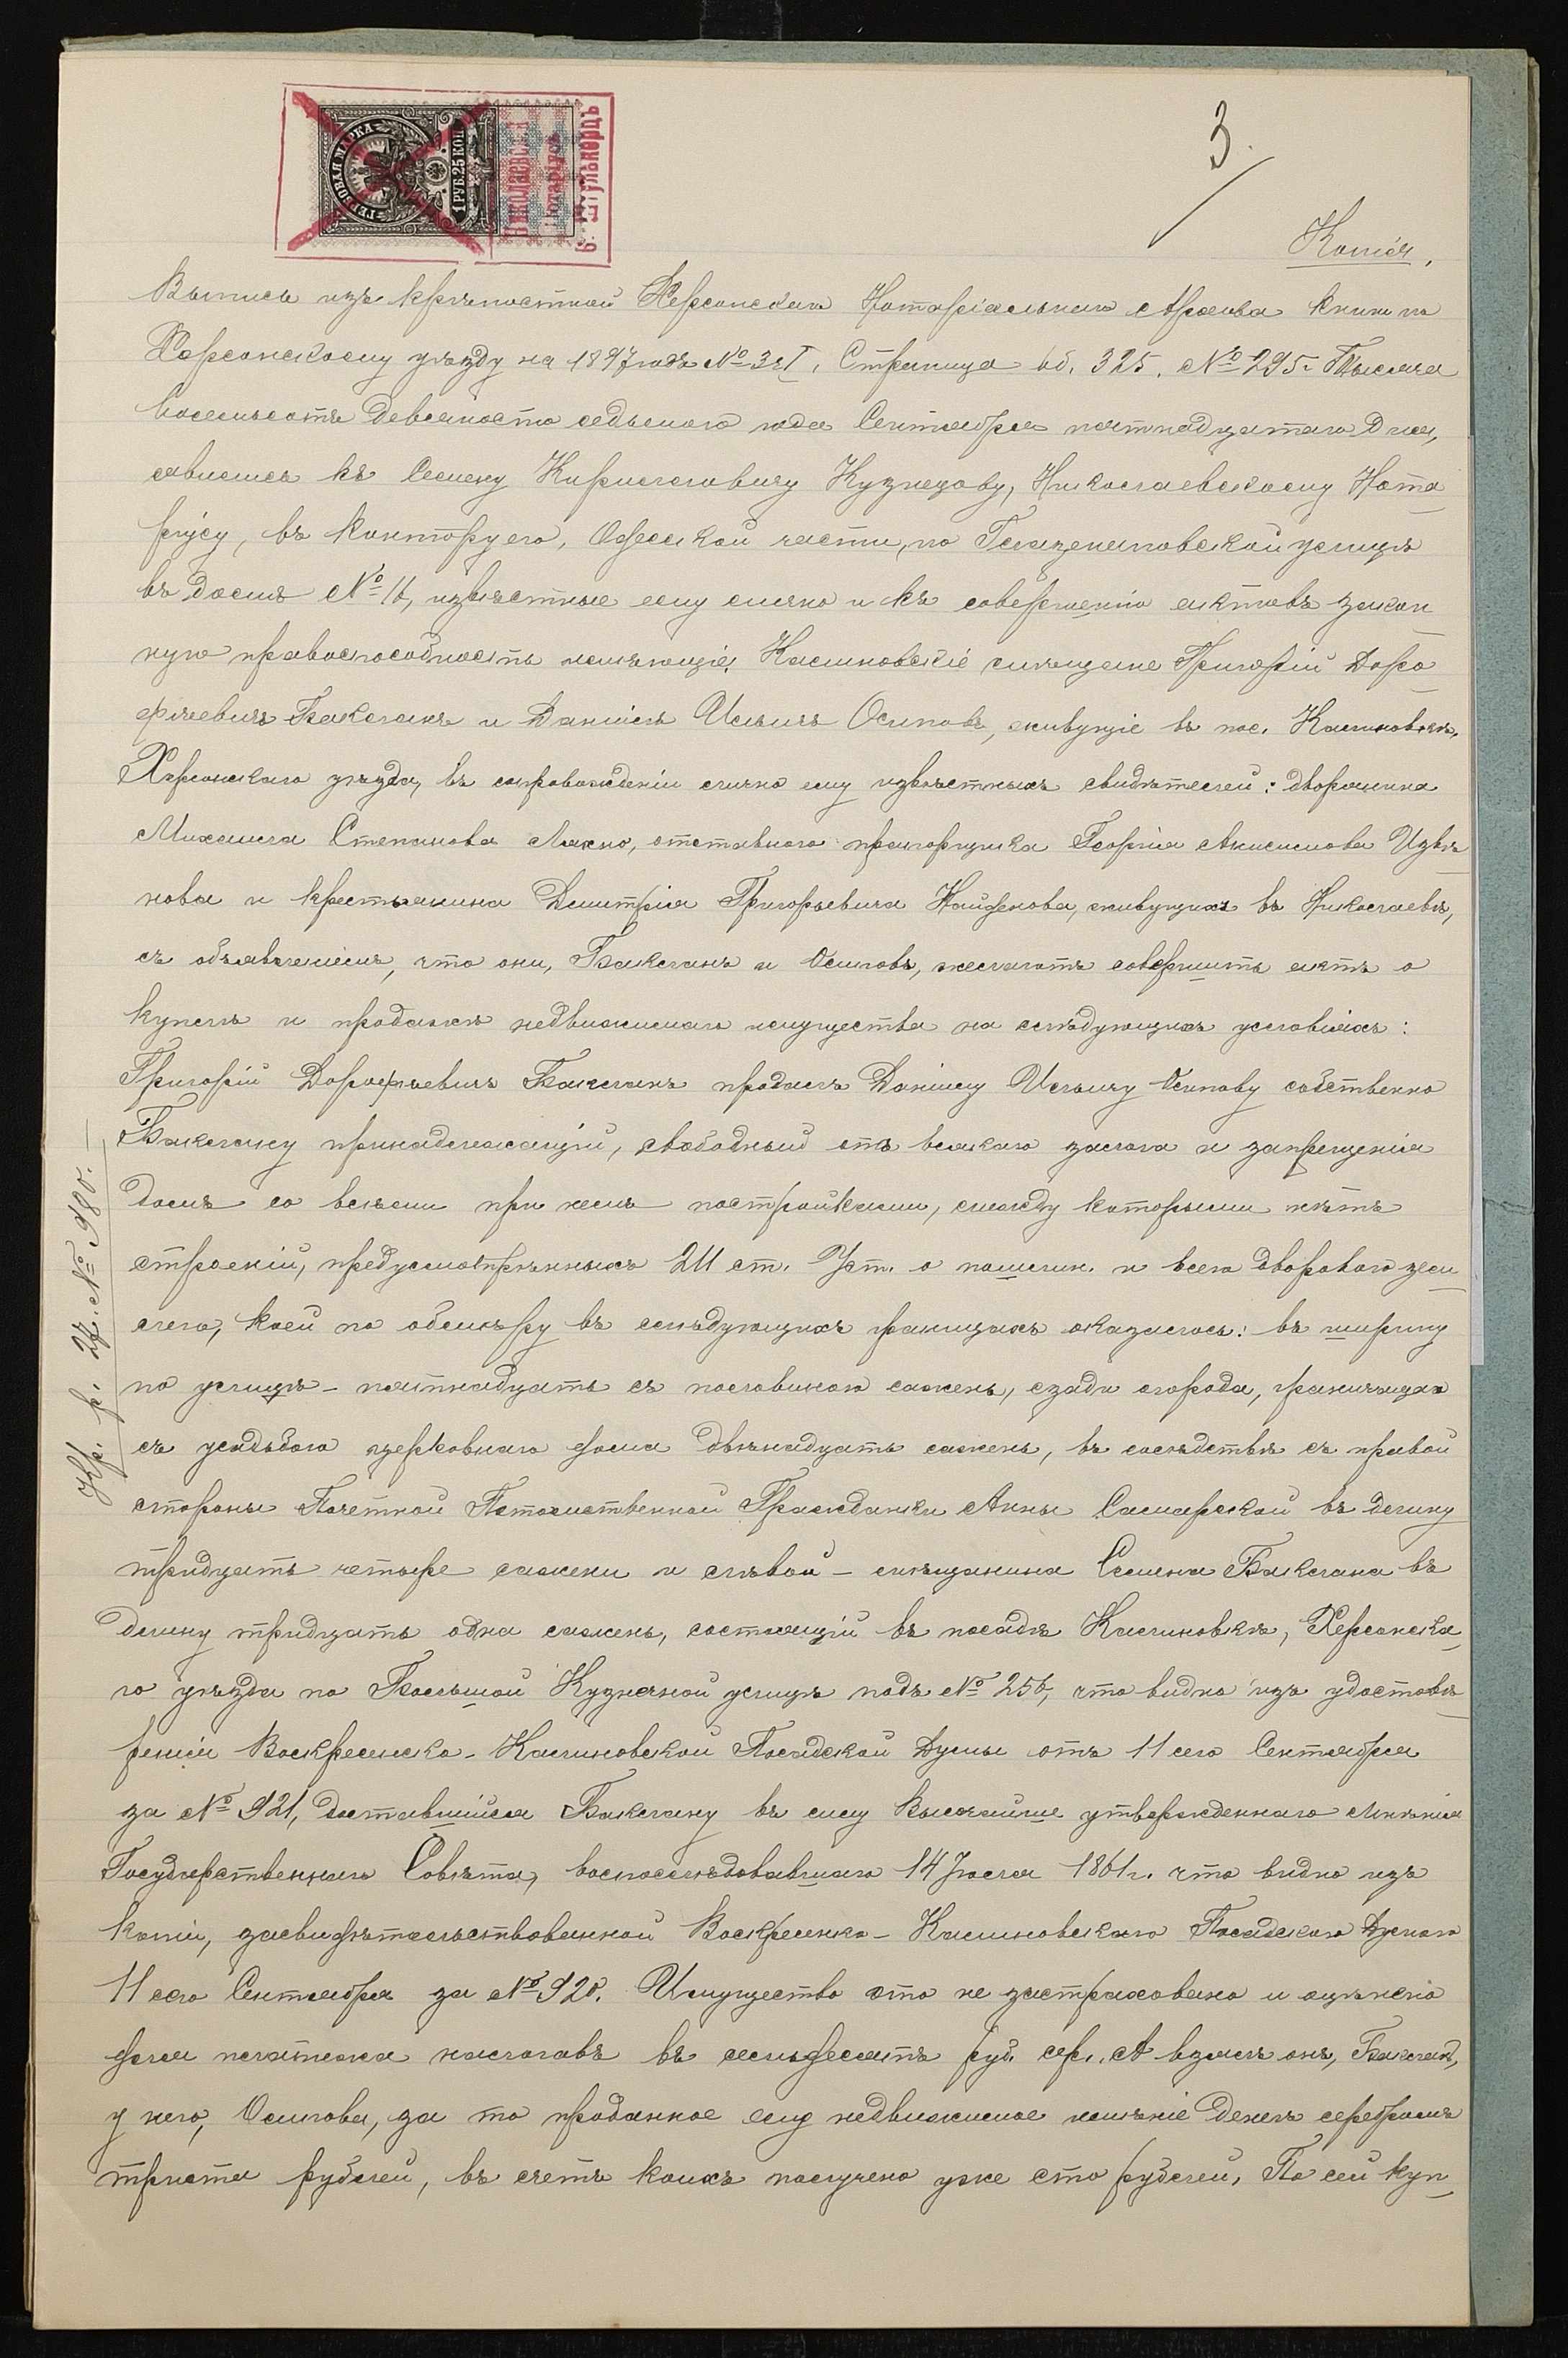 3.
ГЕРБОВАЯ МАРКА
1 РУБ. 25 КОП
Николаевскій
Нотаріусъ
Копія.
Выпись изъ крѣпостной Херсонскаго Нотаріальнаго Архива книги по
Херсонскому уѣзду на 1897 годъ № 3 I. Страница об. 325. № 295. Тысяча
восемьсотъ девяносто седьмого года Сентября пятнадцатаго дня,
явились къ Семену Кирилловичу Кузнецову, Николаевскому Нота
ріусу, въ контору его, Одесской части, по Глазенаповской улицѣ
въ домѣ № 16, извѣстные ему лично и къ совершенію актовъ закон
ную правоспособность имѣющіе, Калиновскіе мѣщане Григорій Доро
феевичъ Бакланъ и Даніилъ Ильичъ Осиповъ, живущіе въ пос. Калиновкѣ,
Херсонскаго уѣзда, въ сопровожденіи лично ему извѣстныхъ свидѣтелей: дворянина
Михаила Степанова Махно, отставного прапорщика Георгія Анисимова Извѣ
кова и крестьянина Дмитрія Григорьевича Найденова, живущихъ въ Николаевѣ,
съ объявленіемъ, что они, Бакланъ и Осиповъ, желаютъ совершить актъ о
куплѣ и продажѣ недвижимаго имущества на слѣдующихъ условіяхъ:
Григорій Дорофѣевичъ Бакланъ продалъ Даніилу Ильичу Осипову собственно
Баклану принадлежащій, свободный отъ всякаго залога и запрещенія
домъ со всѣми при немъ постройками, между которыми нѣтъ
строеній, предусмотрѣнныхъ 211 ст. Уст. о пошлин. и всего двороваго зем
лею, коей по обмѣру въ слѣдующихъ границахъ оказалось: въ ширину
по улицѣ - пятнадцать съ половиною сажень, сзади огорода, гранича
съ усадьбою церковнаго дома двѣнадцать сажень, въ сосѣдствѣ съ правой
стороны Почетной Потомственной Гражданки Анны Самарской въ длину
тридцать четыре сажени и слѣвой - мѣщанина Семена Баклана въ
длину тридцать одна сажень, состоящій въ посадѣ Калиновкѣ, Херсонска
го уѣзда по Большой Кузнечной улицѣ подъ № 256, что видно изъ удостовѣ
ренія Воскресенско-Калиновской Посадской Думы отъ 11 сего Сентября
за № 921, доставшійся Баклану въ силу Высочайше утвержденнаго мнѣнія
Государственнаго Совѣта, воспослѣдовавшаго 14 Іюля 1861 г. что видно изъ
копіи, засвидѣтельствованной Воскресенско-Калиновскою Посадскою Думою
11 сего Сентября за № 920. Имущество это не застраховано и оцѣнено
для платежа налоговъ въ семьдесятъ руб. сер. А взялъ онъ, Бакланъ,
у него, Осипова, за то проданное ему недвижимое имѣніе денегъ серебромъ
триста рублей, въ счетъ коихъ получено уже сто рублей. По сей куп
Кр. р. 27. № 980.